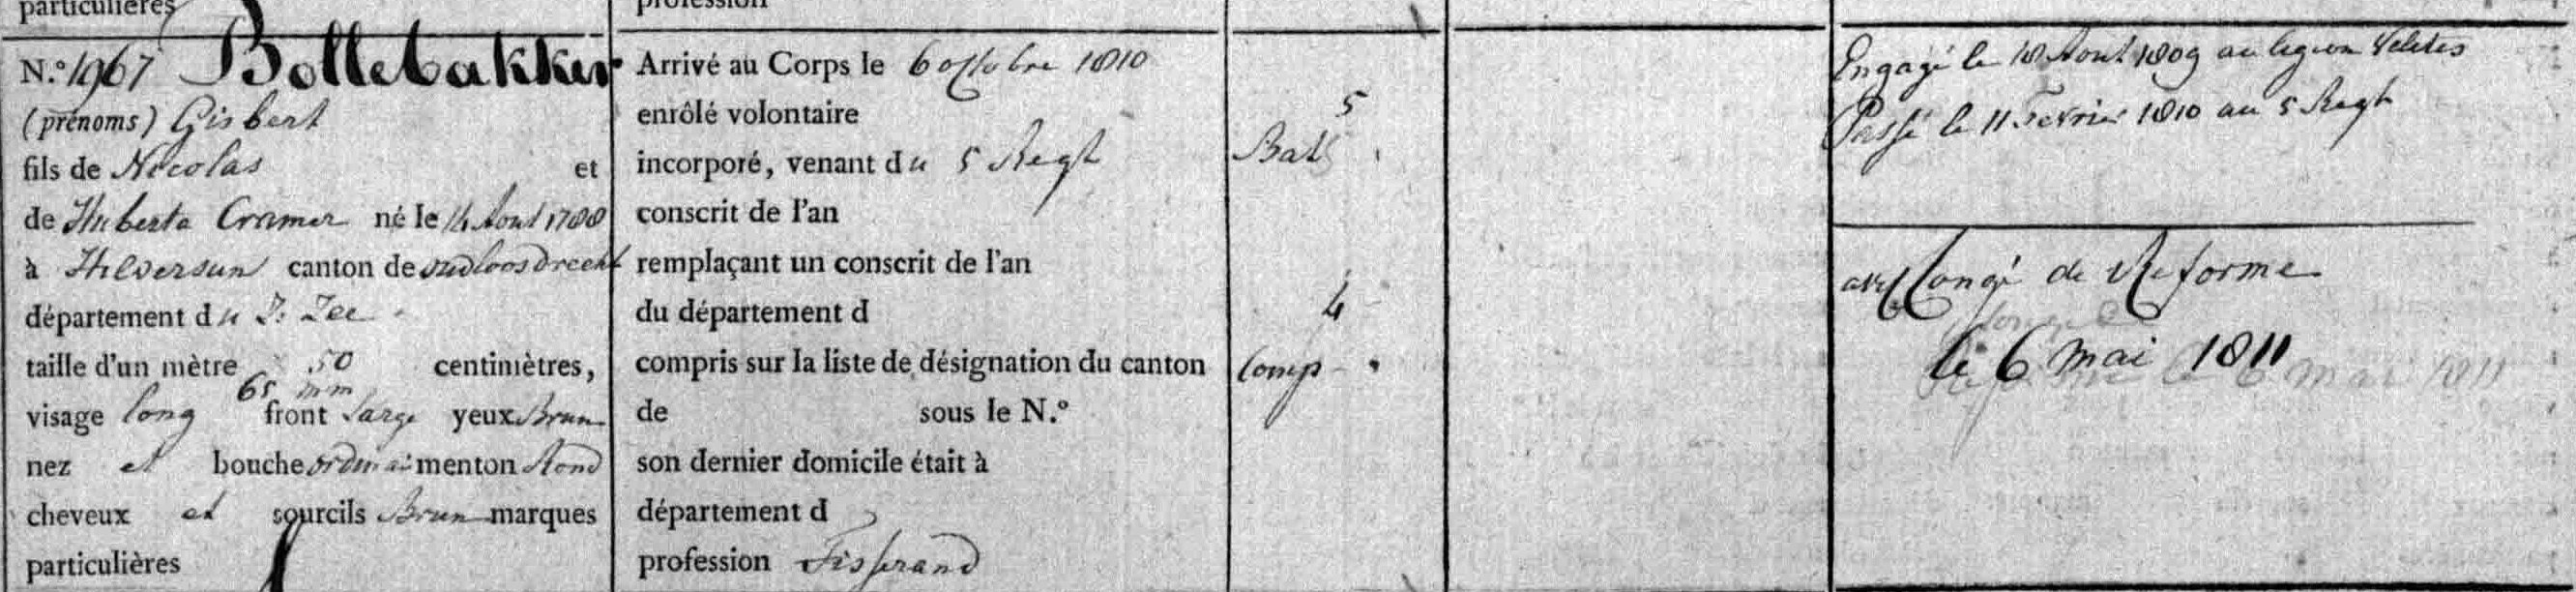 particulières
profession
N.º 1967 Bollebakker
(prénoms) Gisbert
fils de Nicolas et
de Huberta Cramer né le 14 Aout 1788
à Hilversun canton de oudloosdrecht
département du Z. Zee
taille d'un mètre 50 centimètres,
65 mm
visage long front large yeux Brun
nez et bouche ordinai menton Rond
cheveux et sourcils Brun marques
particulières
Arrivé au Corps le 6 octobre 1810
enrôlé volontaire
incorporé, venant du 5 Regt
conscrit de l'an
remplaçant un conscrit de l'an
du département d
compris sur la liste de désignation du canton
de sous le N.º
son dernier domicile était à
département d
profession Tisserand
5
Bat
4
Comp
Engagé le 18 Aout 1809 au legion Velites
Passé le 11 Fevrier 1810 au 5 Regt
Congé de Reforme
le 6 mai 1811
6 mai 1811